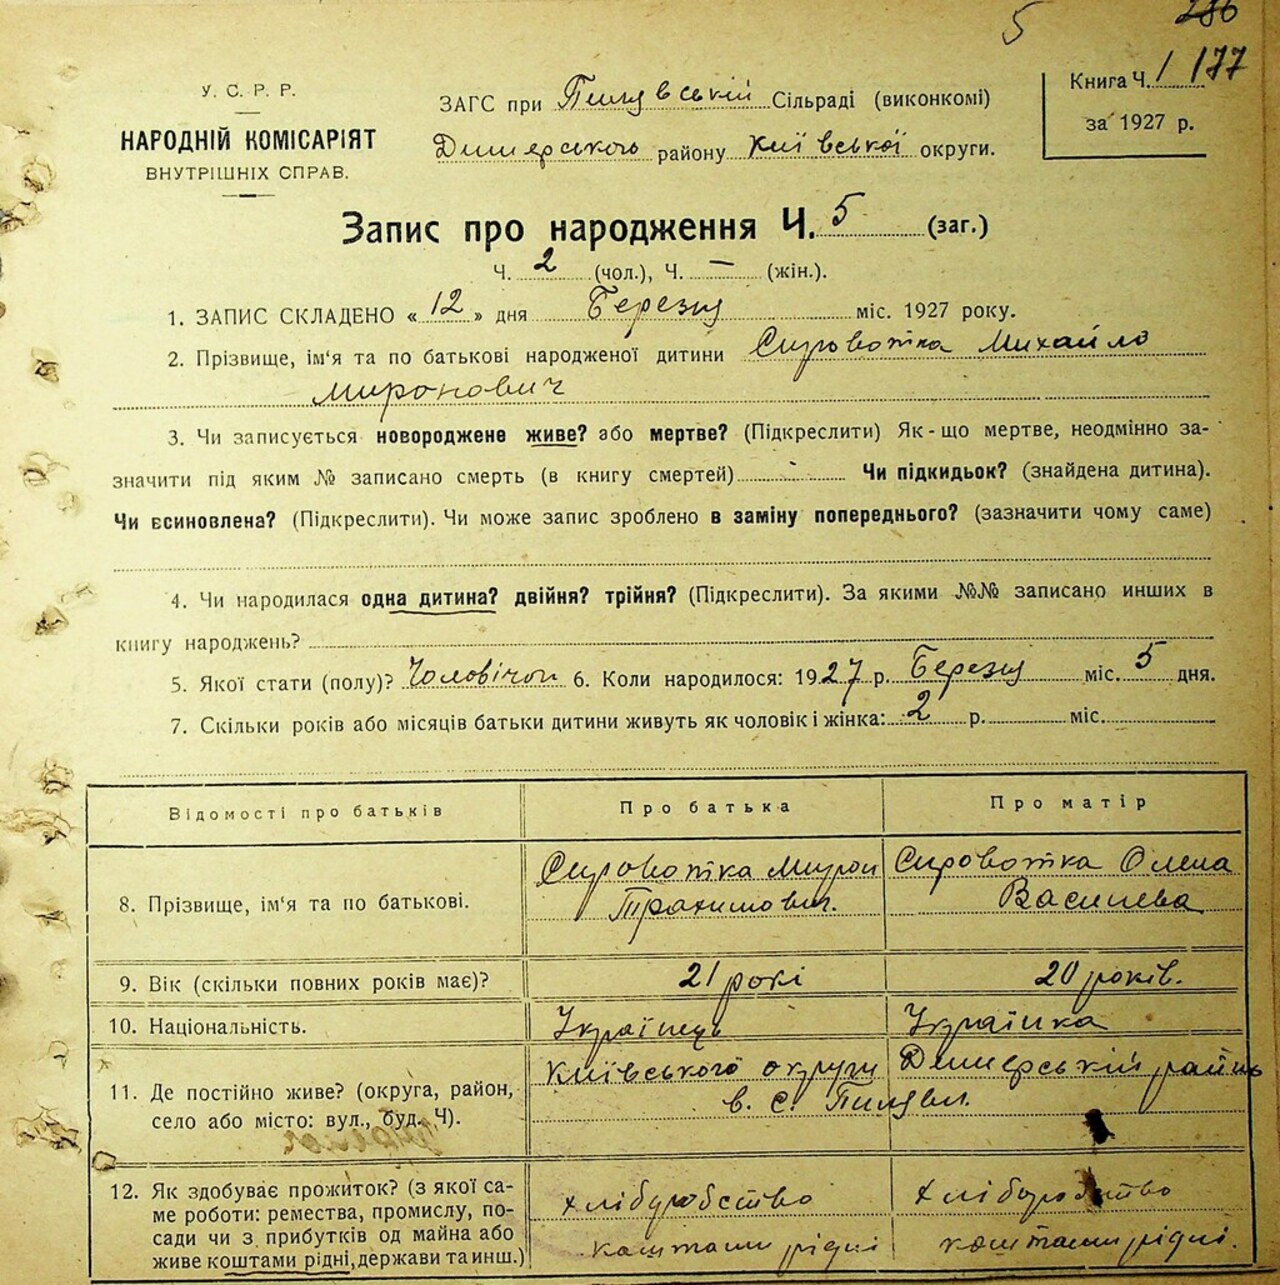 5 286
177
У. С. Р. Р.
НАРОДНІЙ КОМІСАРІЯТ
ВНУТРІШНІХ СПРАВ.
ЗАГС при Пилявській Сільраді (виконкомі)
Димерського району Київської округи.
Книга Ч. 1
за 1927 р.
Запис про народження Ч. 5 (заг.)
Ч. 2 (чол.), Ч. — (жін.).
1. ЗАПИС СКЛАДЕНО « 12 » дня Березня міс. 1927 року.
2. Прізвище, ім'я та по батькові народженої дитини Сироватка Михайло
Миронович
3. Чи записується новороджене живе? або мертве? (Підкреслити) Як-що мертве, неодмінно за-
значити під яким № записано смерть (в книгу смертей) Чи підкидьок? (знайдена дитина).
Чи всиновлена? (Підкреслити). Чи може запис зроблено в заміну попереднього? (зазначити чому саме)
4. Чи народилася одна дитина? двійня? трійня? (Підкреслити). За якими №№ записано инших в
книгу народжень?
5. Якої стати (полу)? Чоловічої 6. Коли народилося: 1927 р. Березня міс. 5 дня.
7. Скільки років або місяців батьки дитини живуть як чоловік і жінка: 2 р. міс.
Відомості про батьків Про батька Про матір
8. Прізвище, ім'я та по батькові. Сироватка Мирон Сироватка Олена
Трахимович. Василева
9. Вік (скільки повних років має)? 21 рокі 20 років.
10. Національність. Українець Українка
11. Де постійно живе? (округа, район, Київського округи Димерській район
село або місто: вул., буд. Ч). в. с. Пилява.
12. Як здобуває прожиток? (з якої са-
ме роботи: ремества, промислу, по- хліборобство хліборобство
сади чи з прибутків од майна або
живе коштами рідні, держави та инш.) коштами рідні коштами рідні.